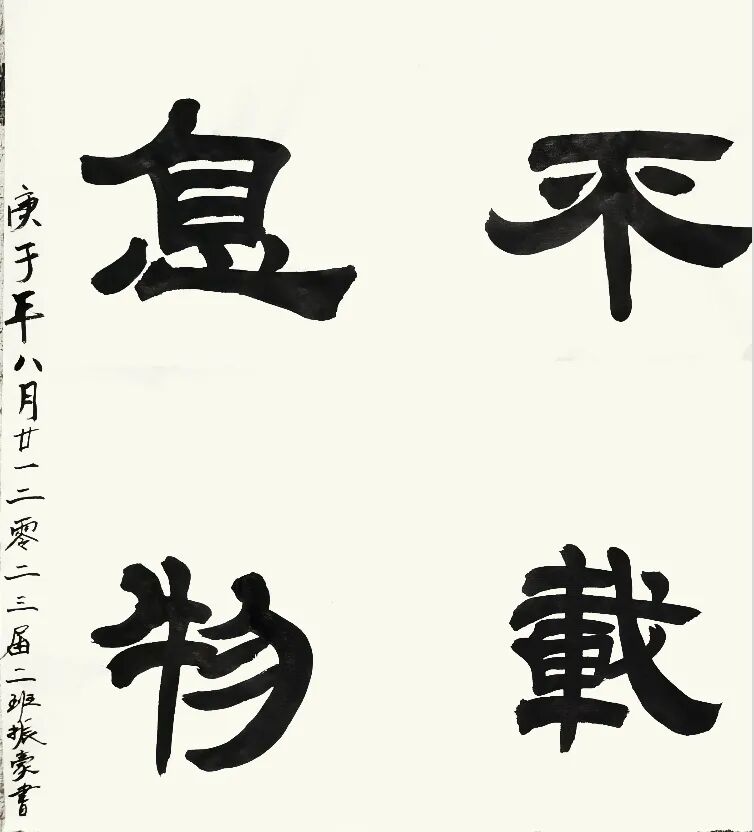 不息
載物
庚子年八月廿一二零二三届二班振豪書